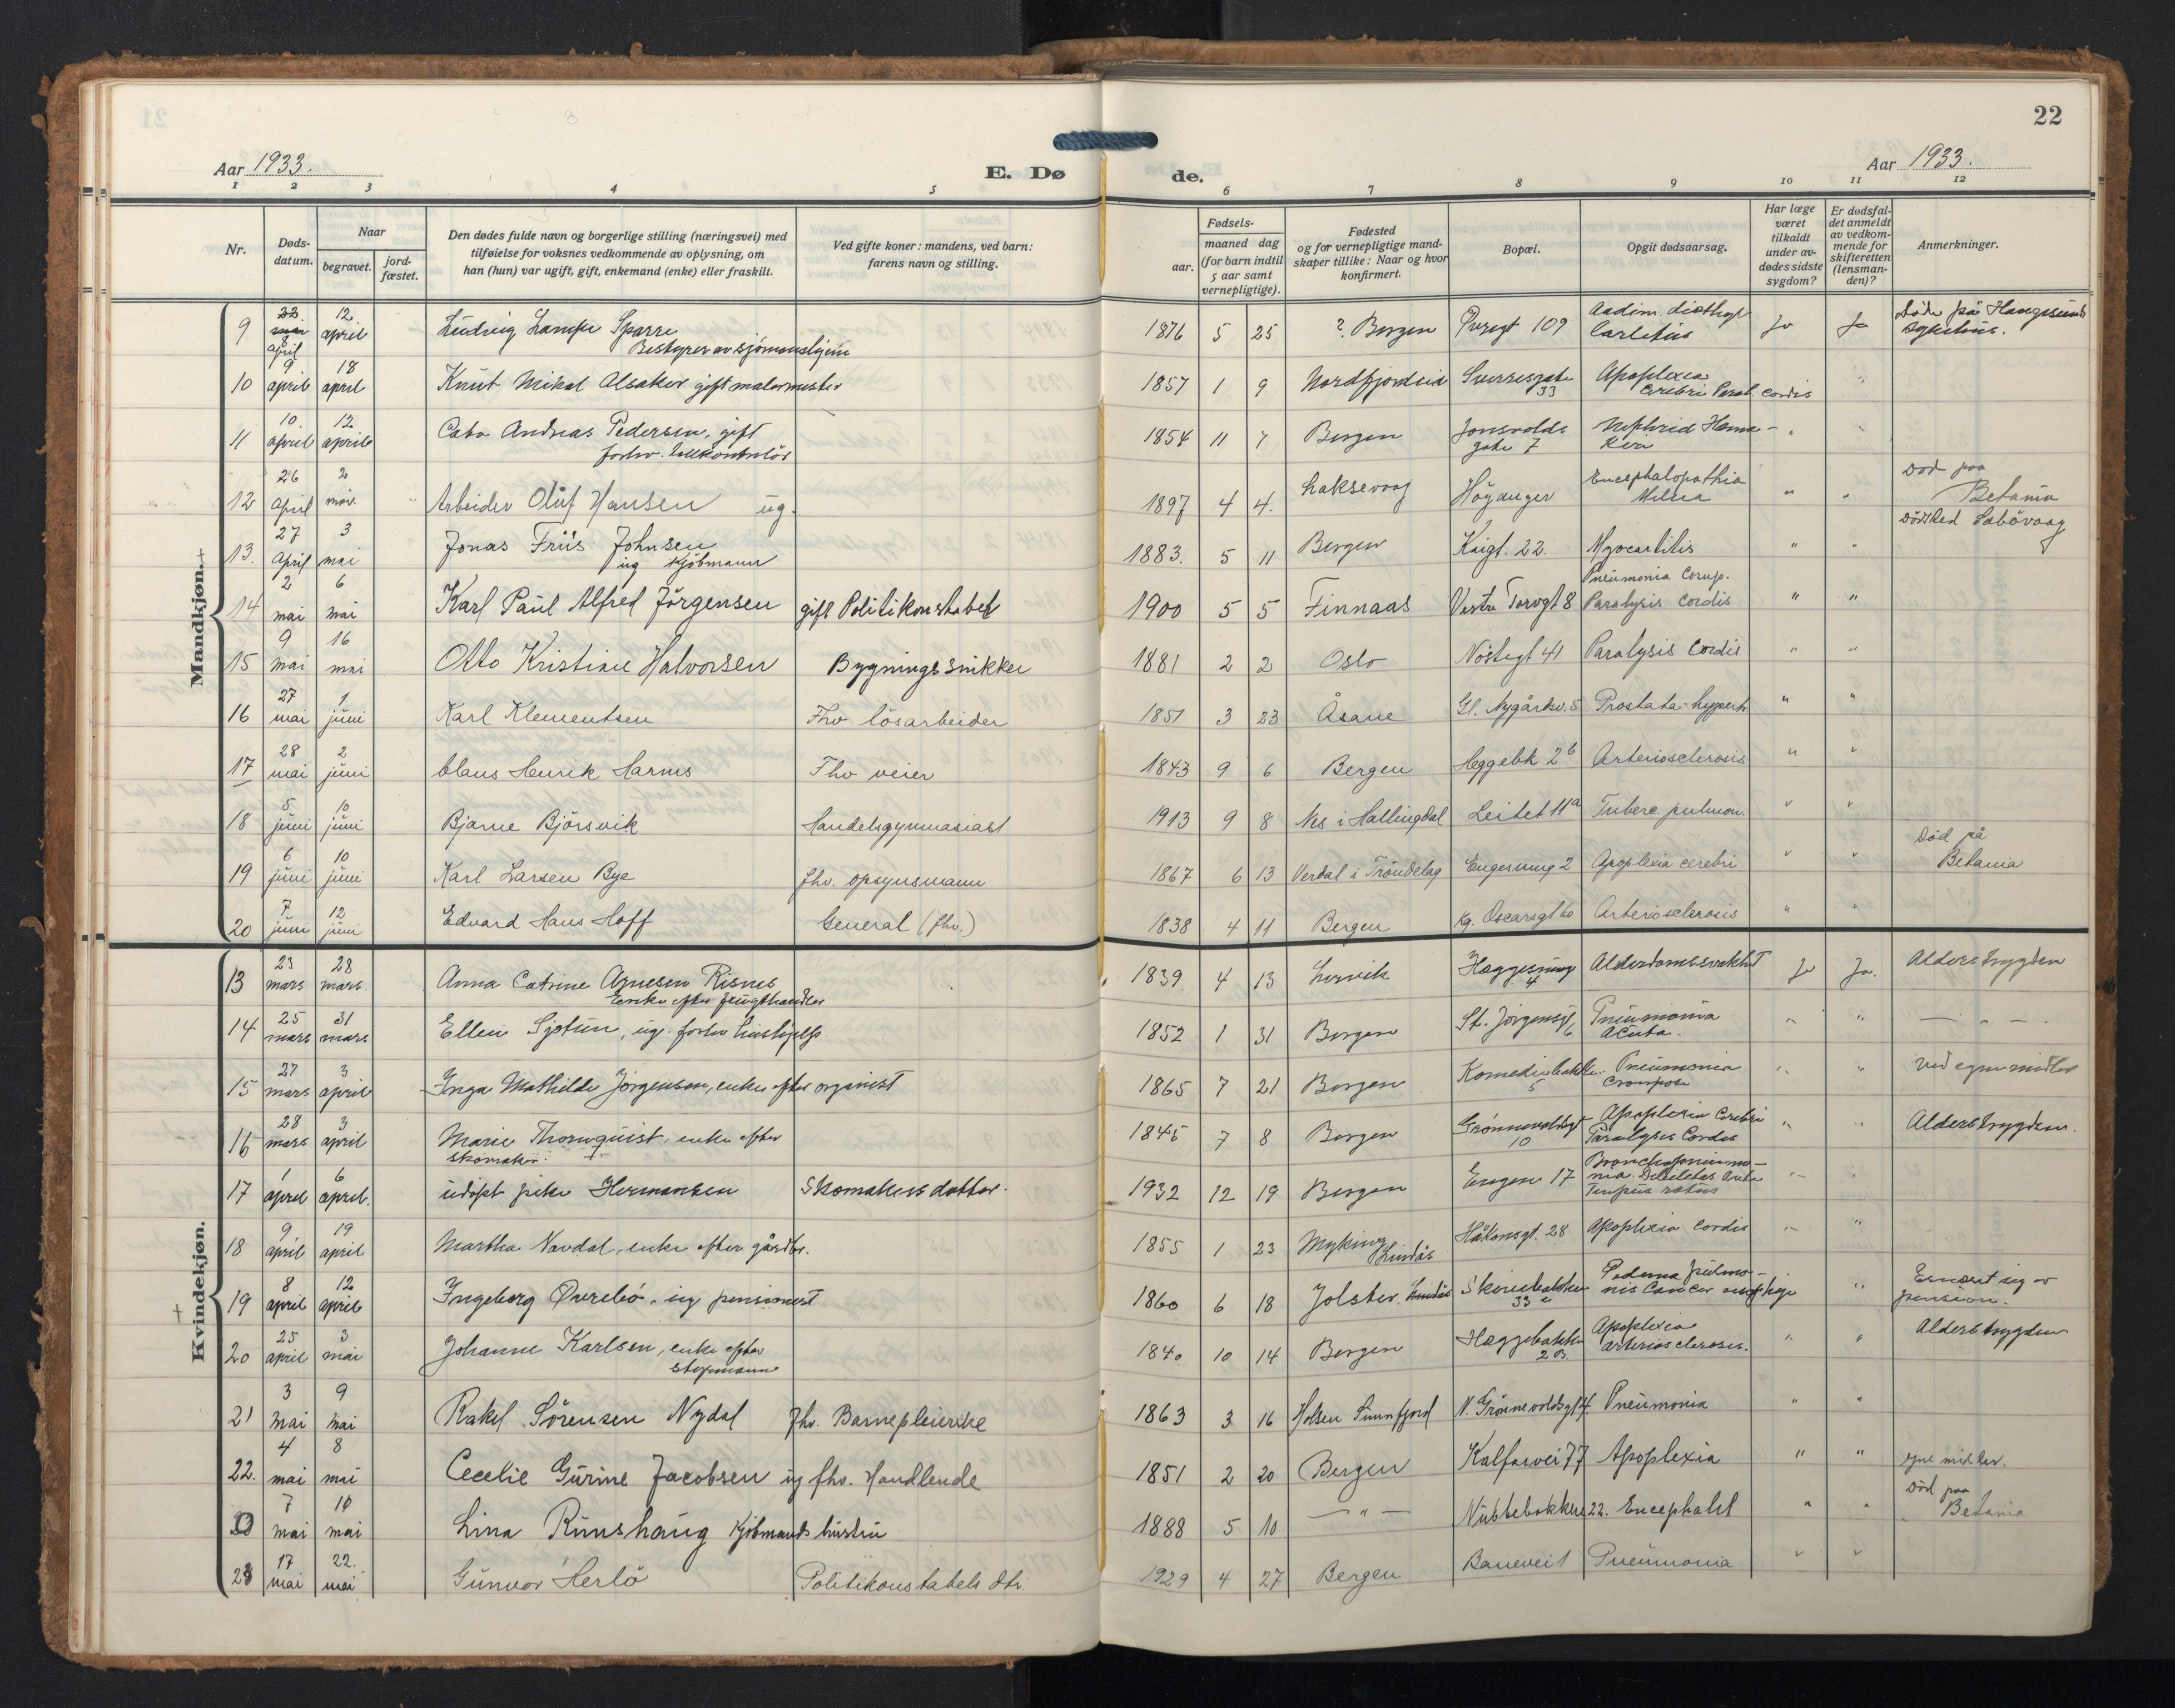 22
Aar 1933.
E. Døde.
Aar 1933.
1 2 3 4 5 6 7 8 9 10 11 12
Nr.
Dødsdatum.
Naar
begravet.
jordfæstet.
Den dødes fulde navn og borgerlige stilling (næringsvei) med tilføielse for voksnes vedkommende av oplysning, om han (hun) var ugift, gift, enkemand (enke) eller fraskilt.
Ved gifte koner: mandens, ved barn: farens navn og stilling.
Fødsels-
aar.
maaned dag
(for barn indtil 5 aar samt vernepligtige).
Fødested
og for vernepligtige mandskaper tillike: Naar og hvor konfirmert.
Bopæl.
Opgit dødsaarsag.
Har læge været tilkaldt under avdødes sidste sygdom?
Er dødsfaldet anmeldt av vedkommende for skifteretten (lensmanden)?
Anmerkninger.
Mandkjøn.
9 8 april 12 april Ludvig Lampe Sparre Bestyrer av sjømanshjem 1876 5 25 ? Bergen 109 Ja Ja Døde på Haugesunds sykehus.
10 9 april 18 april Knut Mikal Alsaker gift malermester 1857 1 9 Nordfjordeid Sverresgate 33 Apoplexia cerebri Paral. cordis "
11 10 april 12 april Cato Andreas Pedersen, gift forhv. tollkontrolör 1854 11 7 Bergen Jonsvolds gate 7 " "
12 26 April 2 mai Arbeider Oluf Hansen ug. 1897 4 4. Laksevaag Höyanger Encephalopathia " " Död paa Betania
13. 27 April 3 mai Jonas Friis Johnsen ug kjöbmann 1883. 5 11 Bergen Kaigt. 22. Myocartitis " " Dödsted Sabövaag
14 2 mai 6 mai Karl Paul Alfred Jörgensen gift Politikonstabel 1900 5 5 Finnaas Vestre Torvgt 8 Pneumonia Corup. Paralysis cordis " "
15 9 mai 16 mai Otto Kristian Halvorsen Bygningssnikker 1881 2 2 Oslo Nöstegt 41 Paralysis cordis " "
16 27 mai 1 juni Karl Klementsen Fhv lösarbeider 1851 3 23 Åsane Gl. Nygårdsv. 5 Prostata-hypertr " "
17 28 mai 2 juni Claus Henrik Harms Fhv veier 1843 9 6 Bergen Heggebk 2b Arteriosclerosis " "
18 5 juni 10 juni Bjarne Björsvik Handelsgymnasiast 1913 9 8 Nes i Hallingdal Leitet 11a Tuberc. pulmon. " "
19 6 juni 10 juni Karl Larsen Bye fhv. opsynsmann 1867 6 13 Verdal i Tröndelag Engesmug 2 Apoplexia cerebri " " Död på Betania
20 7 juni 12 juni Edvard Hans Hoff General (fhv.) 1838 4 11 Bergen Kg. Oscarsgt 60 Arteriosclerosis " "
Kvindekjøn.
13 23 mars 28 mars. Anna Catrine Agnesen Risnes Enke efter 1839 4 13 Leervik Heggesmug 4 Alderdomssvakhet Ja Ja. Alderstrygden
14 25 mars 31 mars Ellen Sjøtun, ug. forhv hushjelp. 1852 1 31 Bergen St. Jørgensgt 6 Pneumonia acuta. " " — " —
15 27 mars 3 april Inga Mathilde Jørgensen, enke efter organist 1865 7 21 Bergen Komediebakken 5 Pneumonia " " Ved egne midler
16 28 mars 3 april Marie Thornquist, enke efter skomaker. 1845 7 8 Bergen Grønnevoldsgt 10 Apoplexia Cerebri Paralyses Cordis " " Alderstrygden.
17 1 april 6 april. udøpt pike Hermansen Skomakers datter. 1932 12 19 Bergen Engen 17 Bronchopneumonia. Debilitas " "
18 9 april 19 april Martha Navdal, enke efter gårdbr. 1855 1 23 Myking Lindås Håkonsgt. 28 Apoplexia cordis " "
19 8 april 12 april Ingeborg Øvrebö, ug pensionist 1860 6 18 Jolster. Skivebakken 33 c nis Cancer oesophagi " Ernært sig av pension.
20 25 april 3 mai Johanne Karlsen, enke efter stopmann 1840. 10 14 Bergen Heggebakken 2 B. Apoplexia arteriosclerosis. " " Alderstrygden
21 3 mai 9 mai Rakel Sörensen Nydal fhv. Barnepleierske 1863 3 16 Holsen Sunnfjord N. Grönnevoldsgt 4. Pneumonia " "
22. 4 mai 8 mai Cecelie Gurine Jacobsen ug fhv. Handlende 1851 2 20 Bergen Kalfarvei 77 Apoplexia " " egne midler.
7 mai 10 mai Lina Runshaug Kjöbmands hustru 1888 5 10 — " — Nubbebakken 22. Encephalit " " Död paa Betania
23 17 mai 22. mai Gunvor Herlö Politikonstabels dtr. 1929 4 27 Bergen Banevei 1 Pneumonia " "